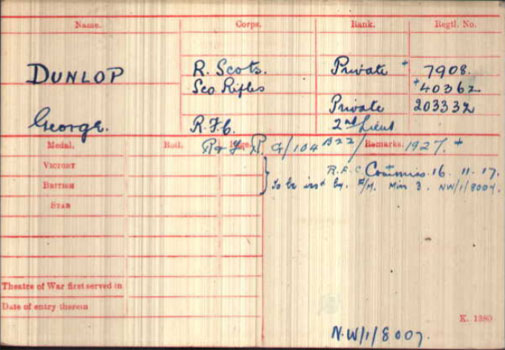 Name. Corps. Rank. Regtl. No.
DUNLOP R. Scots. Private 7908.
Sco Rifles + 40362
Private 203332
George. R.F.C. 2nd Lieut
Medal. Roll. Page. Remarks. 1927. +
VICTORY R.F.C. Commiss. 16. 11. 17.
BRITISH To be NW/1/8007.
STAR
Theatre of War first served in
Date of entry therein
K. 1380
NW/1/8007.